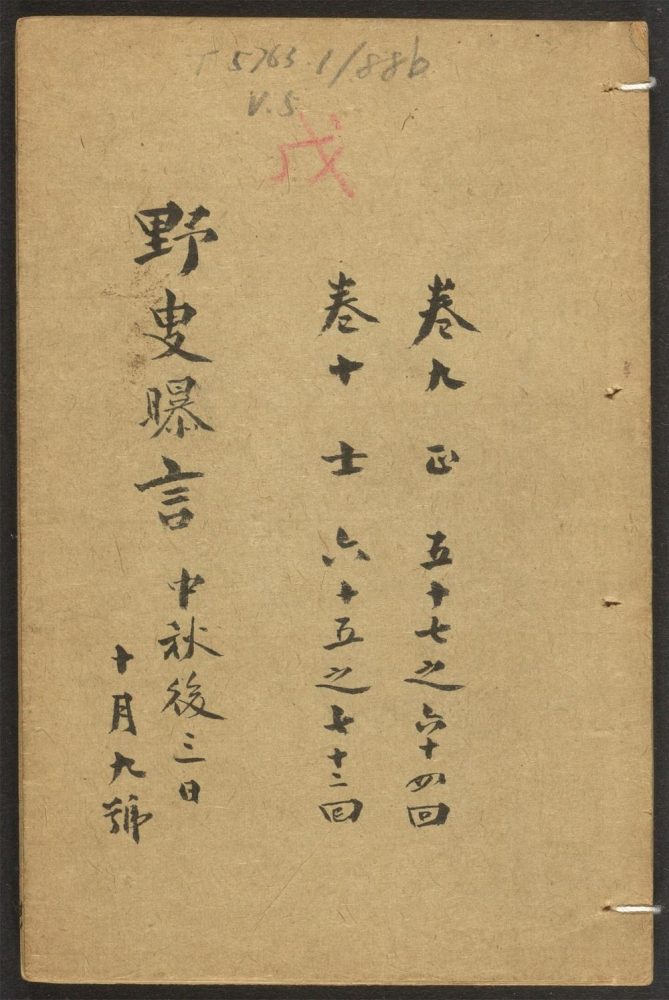 T 5763.1/886
V.5
戊
卷九 正 五十七之六十四回
卷十 士 六十五之七十二回
野叟曝言 中秋後三日
十月九號